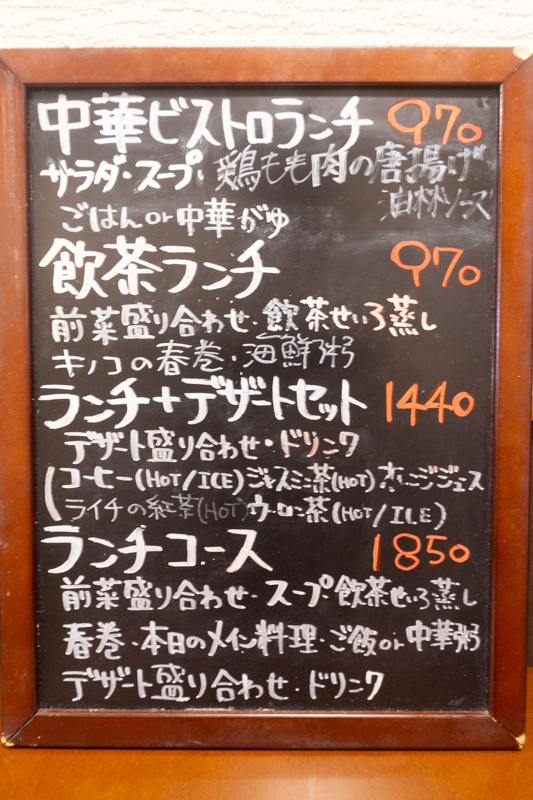 中華ビストロランチ 970
サラダ・スープ・鶏もも肉の唐揚げ
油林ソース
ごはんor中華がゆ
飲茶ランチ 970
前菜盛り合わせ・飲茶せいろ蒸し
キノコの春巻・海鮮粥
ランチ+デザートセット 1440
デザート盛り合わせ・ドリンク
(コーヒー(HOT/ICE)ジャスミン茶(HOT)オレンジジュース
ライチの紅茶(HOT)ウーロン茶(HOT/ICE)
ランチコース 1850
前菜盛り合わせ・スープ飲茶せいろ蒸し
春巻・本日のメイン料理・ご飯or中華粥
デザート盛り合わせ・ドリンク